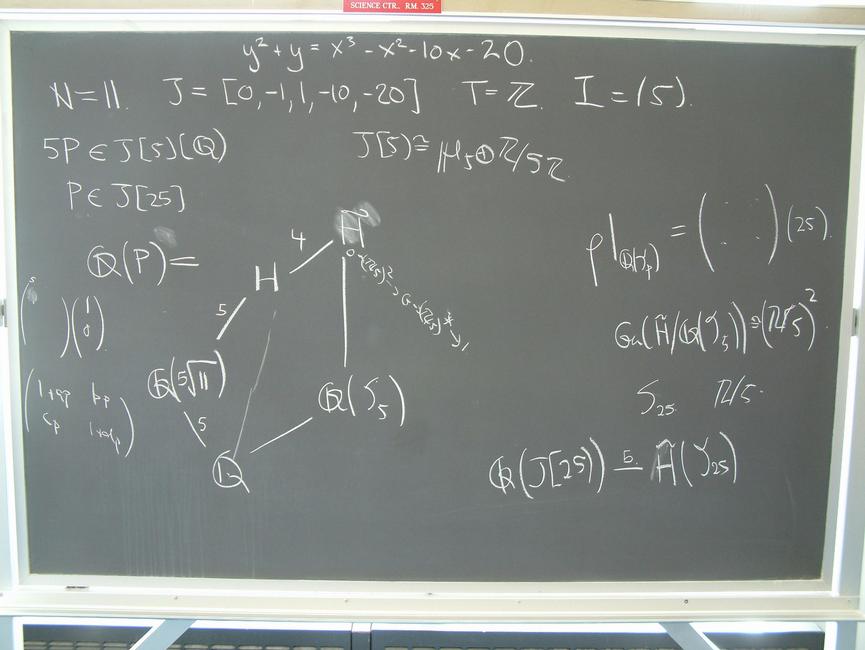 SCIENCE CTR., RM. 325
y² + y = x³ - x² - 10x - 20.
N = 11. J = [0, -1, 1, -10, -20] T = ℤ. I = (5).
5P ∈ J[5](ℚ) J[5] ≅ μ₅ ⊕ ℤ/5ℤ
P ∈ J[25]
ℚ(P) =
H 4 H̃
ρ|ℚ(ζp) = ( ) (25).
0 → (ℤ/5)² → G → (ℤ/5)* → 1
5
( )(1 0)
Gal(H̃/ℚ(ζ₅)) ≅ (ℤ/5)²
ℚ(⁵√11) ℚ(ζ₅)
ζ₂₅ ℤ/5.
(1+ap bp cp 1+dp)
5
ℚ
ℚ(J[25]) 5 H̃(ζ₂₅)